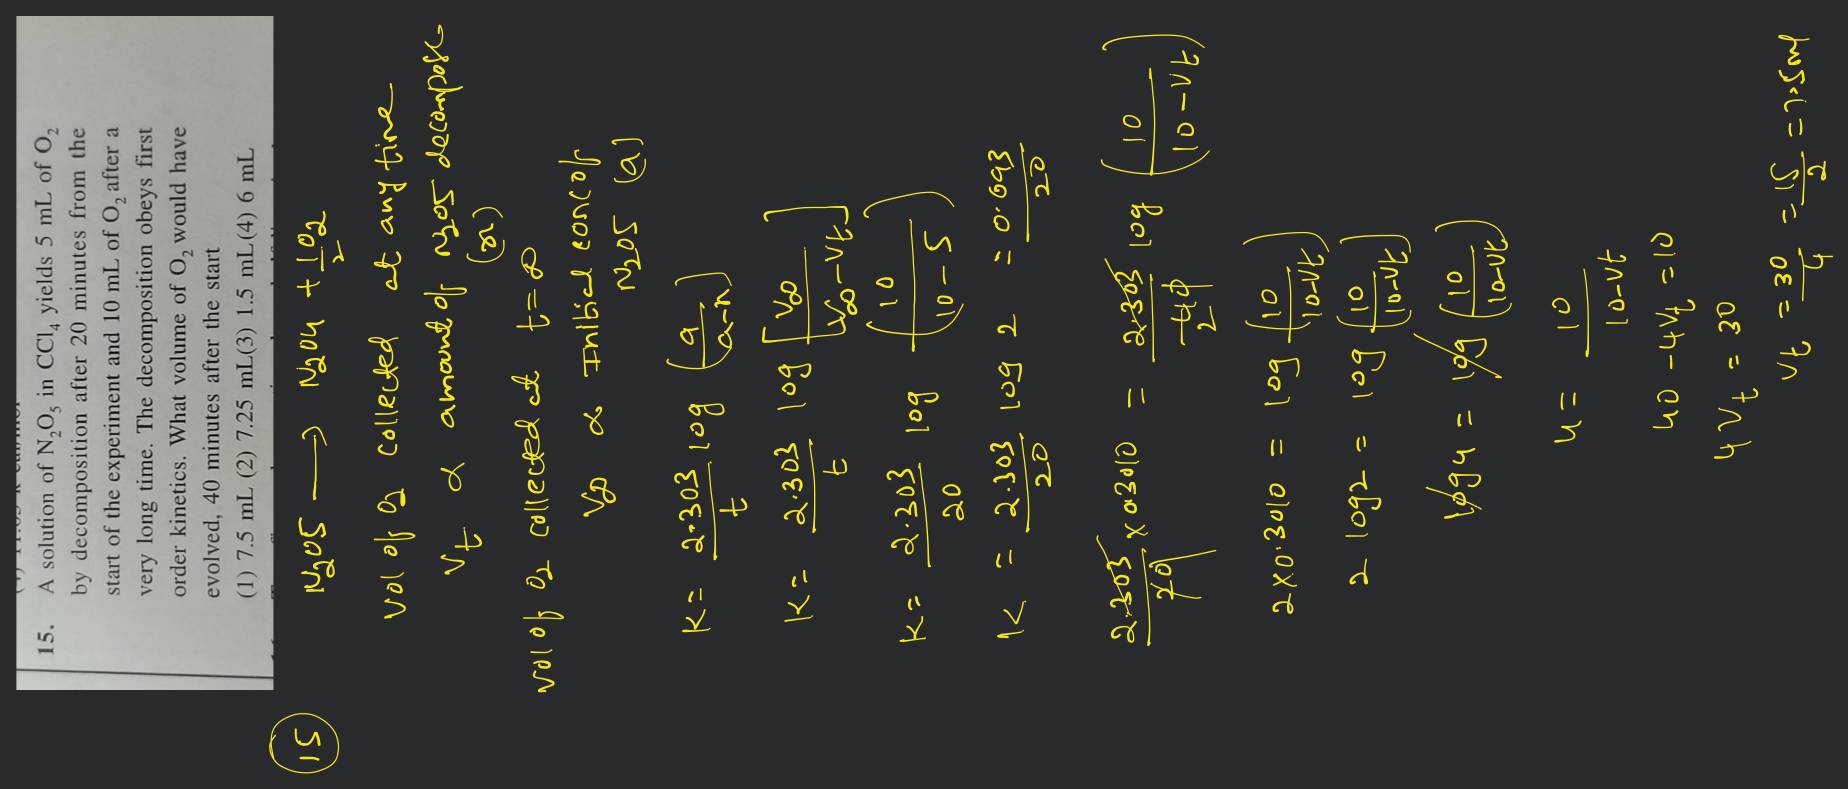 15. A solution of N₂O₅ in CCl₄ yields 5 mL of O₂
by decomposition after 20 minutes from the
start of the experiment and 10 mL of O₂ after a
very long time. The decomposition obeys first
order kinetics. What volume of O₂ would have
evolved, 40 minutes after the start
(1) 7.5 mL (2) 7.25 mL (3) 1.5 mL (4) 6 mL
15
N₂O₅ → N₂O₄ + 1/2 O₂
Vol of O₂ collected at any time
Vt ∝ amount of N₂O₅ decompose
(x)
Vol of O₂ collected at t=∞
V∞ ∝ Initial conc of
N₂O₅ (a)
K = 2.303/t log (a/a-x)
K = 2.303/t log [V∞/V∞-Vt]
K = 2.303/20 log (10/10-5)
K = 2.303/20 log 2 = 0.693/20
2.303/20 × 0.3010 = 2.303/40 2 log (10/10-Vt)
2×0.3010 = log (10/10-Vt)
2 log 2 = log (10/10-Vt)
log 4 = log (10/10-Vt)
4 = 10/10-Vt
40 - 4Vt = 10
4Vt = 30
Vt = 30/4 = 15/2 = 7.5ml